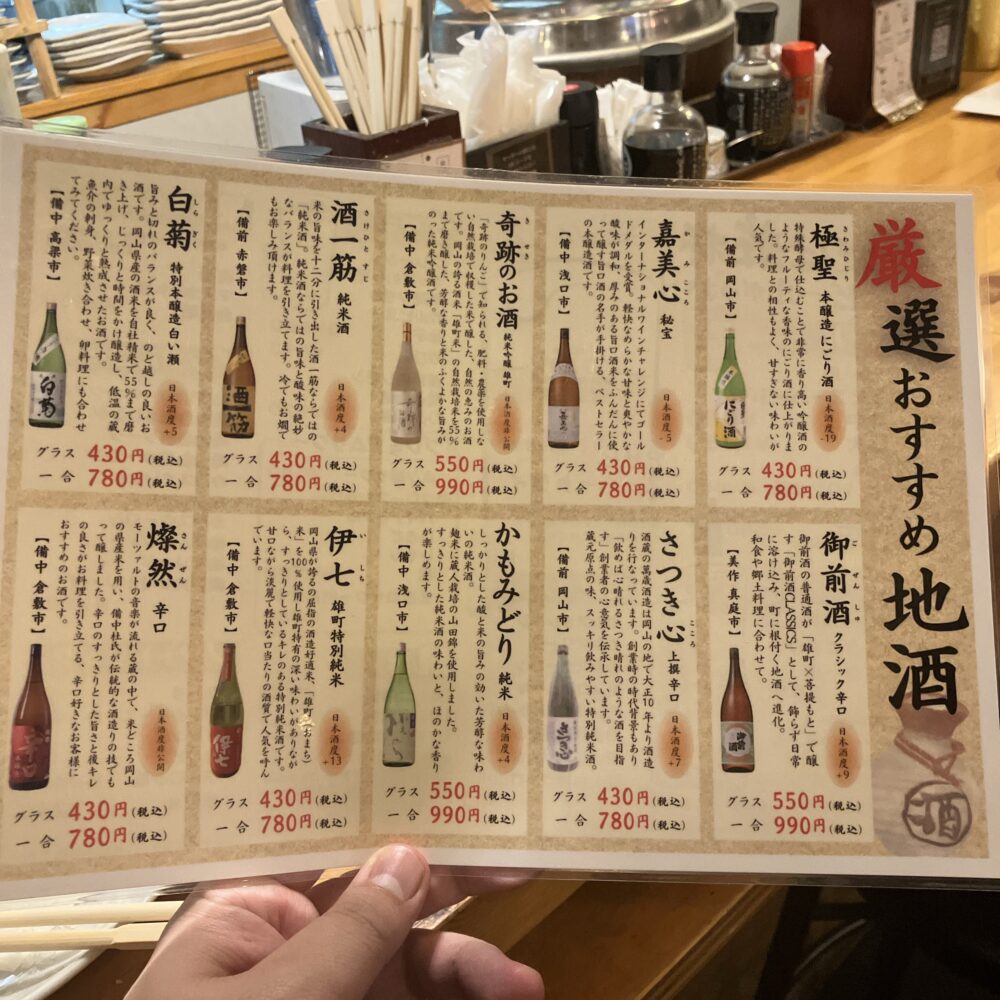 厳選おすすめ地酒
酒
きわみひじり
極聖
本醸造にごり酒
【備前 岡山市】
特殊酵母で仕込むことで非常に香り高い吟醸酒の
ようなフルーティな香味のにごり酒に仕上がりま
した。料理との相性もよく、甘すぎない味わいが
人気です。
日本酒度
-19
にごり酒
グラス 430円(税込)
一合 780円(税込)
かみこころ
嘉美心
秘宝
【備中 浅口市】
インターナショナルワインチャレンジにてゴール
ドメダルを受賞。軽快なめらかな甘味と爽やかな
酸味が調和。厚みのある旨口酒米をふんだんに使
って醸す旨口酒の名手が手掛ける、ベストセラー
の本醸造酒です。
日本酒度
-5
グラス 430円(税込)
一合 780円(税込)
きせき
奇跡のお酒
純米吟醸 雄町
【備中 倉敷市】
「奇跡のりんご」で知られる、肥料・農薬を使用しな
い自然栽培で収穫した米で醸した、自然の恵みのお酒
です。岡山の誇る酒米「雄町米」の自然栽培米を55%
まで磨き醸した、芳醇な香りと米のふくよかな旨みが
のった純米吟醸酒です。
日本酒度非公開
グラス 550円(税込)
一合 990円(税込)
さけひとすじ
酒一筋
純米酒
【備前 赤磐市】
米の旨味を十二分に引き出した酒一筋ならではの
「純米酒」。純米酒ならではの旨味と酸味の絶妙
なバランスが料理を引き立てます。冷でもお燗で
もお楽しみ頂けます。
日本酒度
+4
酒一筋
グラス 430円(税込)
一合 780円(税込)
しらぎく
白菊
特別本醸造 白い瀬
【備中 高梁市】
旨みと切れのバランスが良く、のど越しの良いお
酒です。岡山県産の酒米を自社精米で55%まで磨
き上げ、じっくりと時間をかけ醸造し、低温の蔵
内でゆっくりと熟成させたお酒です。
魚介の刺身、野菜炊き合わせ、卵料理にも合わせ
てみてください。
日本酒度
+5
白菊
グラス 430円(税込)
一合 780円(税込)
ごぜんしゅ
御前酒
クラシック辛口
【美作 真庭市】
御前酒の普通酒が「雄町×菩提もと」で醸
す「御前酒CLASSICS」として、飾らず日常
に溶け込み、町に根付く地酒へ進化。
和食や郷土料理に合わせて。
日本酒度
+9
御前酒
グラス 550円(税込)
一合 990円(税込)
さつき心
こころ
上撰辛口
【備前 岡山市】
酒蔵の萬歳酒造は岡山の地で大正10年より酒造
りを行なっています。創業時の時代背景もあり
「飲めば心晴れるさつき晴れのような酒を目指
す」創業者の心意気を伝承しています。
蔵元原点の味、スッキリ飲みやすい特別純米酒。
日本酒度
+7
さつき心
グラス 430円(税込)
一合 780円(税込)
かもみどり
純米
【備中 浅口市】
しっかりとした酸と米の旨みの効いた芳醇な味わ
いの純米酒。
麹米に蔵人栽培の山田錦を使用しました。
すっきりとした純米酒の味わいと、ほのかな香り
が楽しめます。
日本酒度
+4
グラス 550円(税込)
一合 990円(税込)
いしち
伊七
雄町特別純米
【備中 倉敷市】
岡山県が誇る屈指の酒造好適米、「雄町(おまち)
米」を100%使用し雄町特有の深い味わいがありなが
ら、すっきりとしているキレのある特別純米酒です。
甘口ながら淡麗で軽快な口当たりの酒質で人気を呼ん
でいます。
日本酒度
+13
伊七
グラス 430円(税込)
一合 780円(税込)
さんぜん
燦然
辛口
【備中 倉敷市】
モーツァルトの音楽が流れる蔵の中で、米どころ岡山
の県産米を用い、備中杜氏が伝統的な酒造りの技でも
って醸しました。辛口のすっきりとした旨さと後キレ
の良さがお料理を引き立てる、辛口好きなお客様に
おすすめのお酒です。
日本酒度非公開
辛口
グラス 430円(税込)
一合 780円(税込)